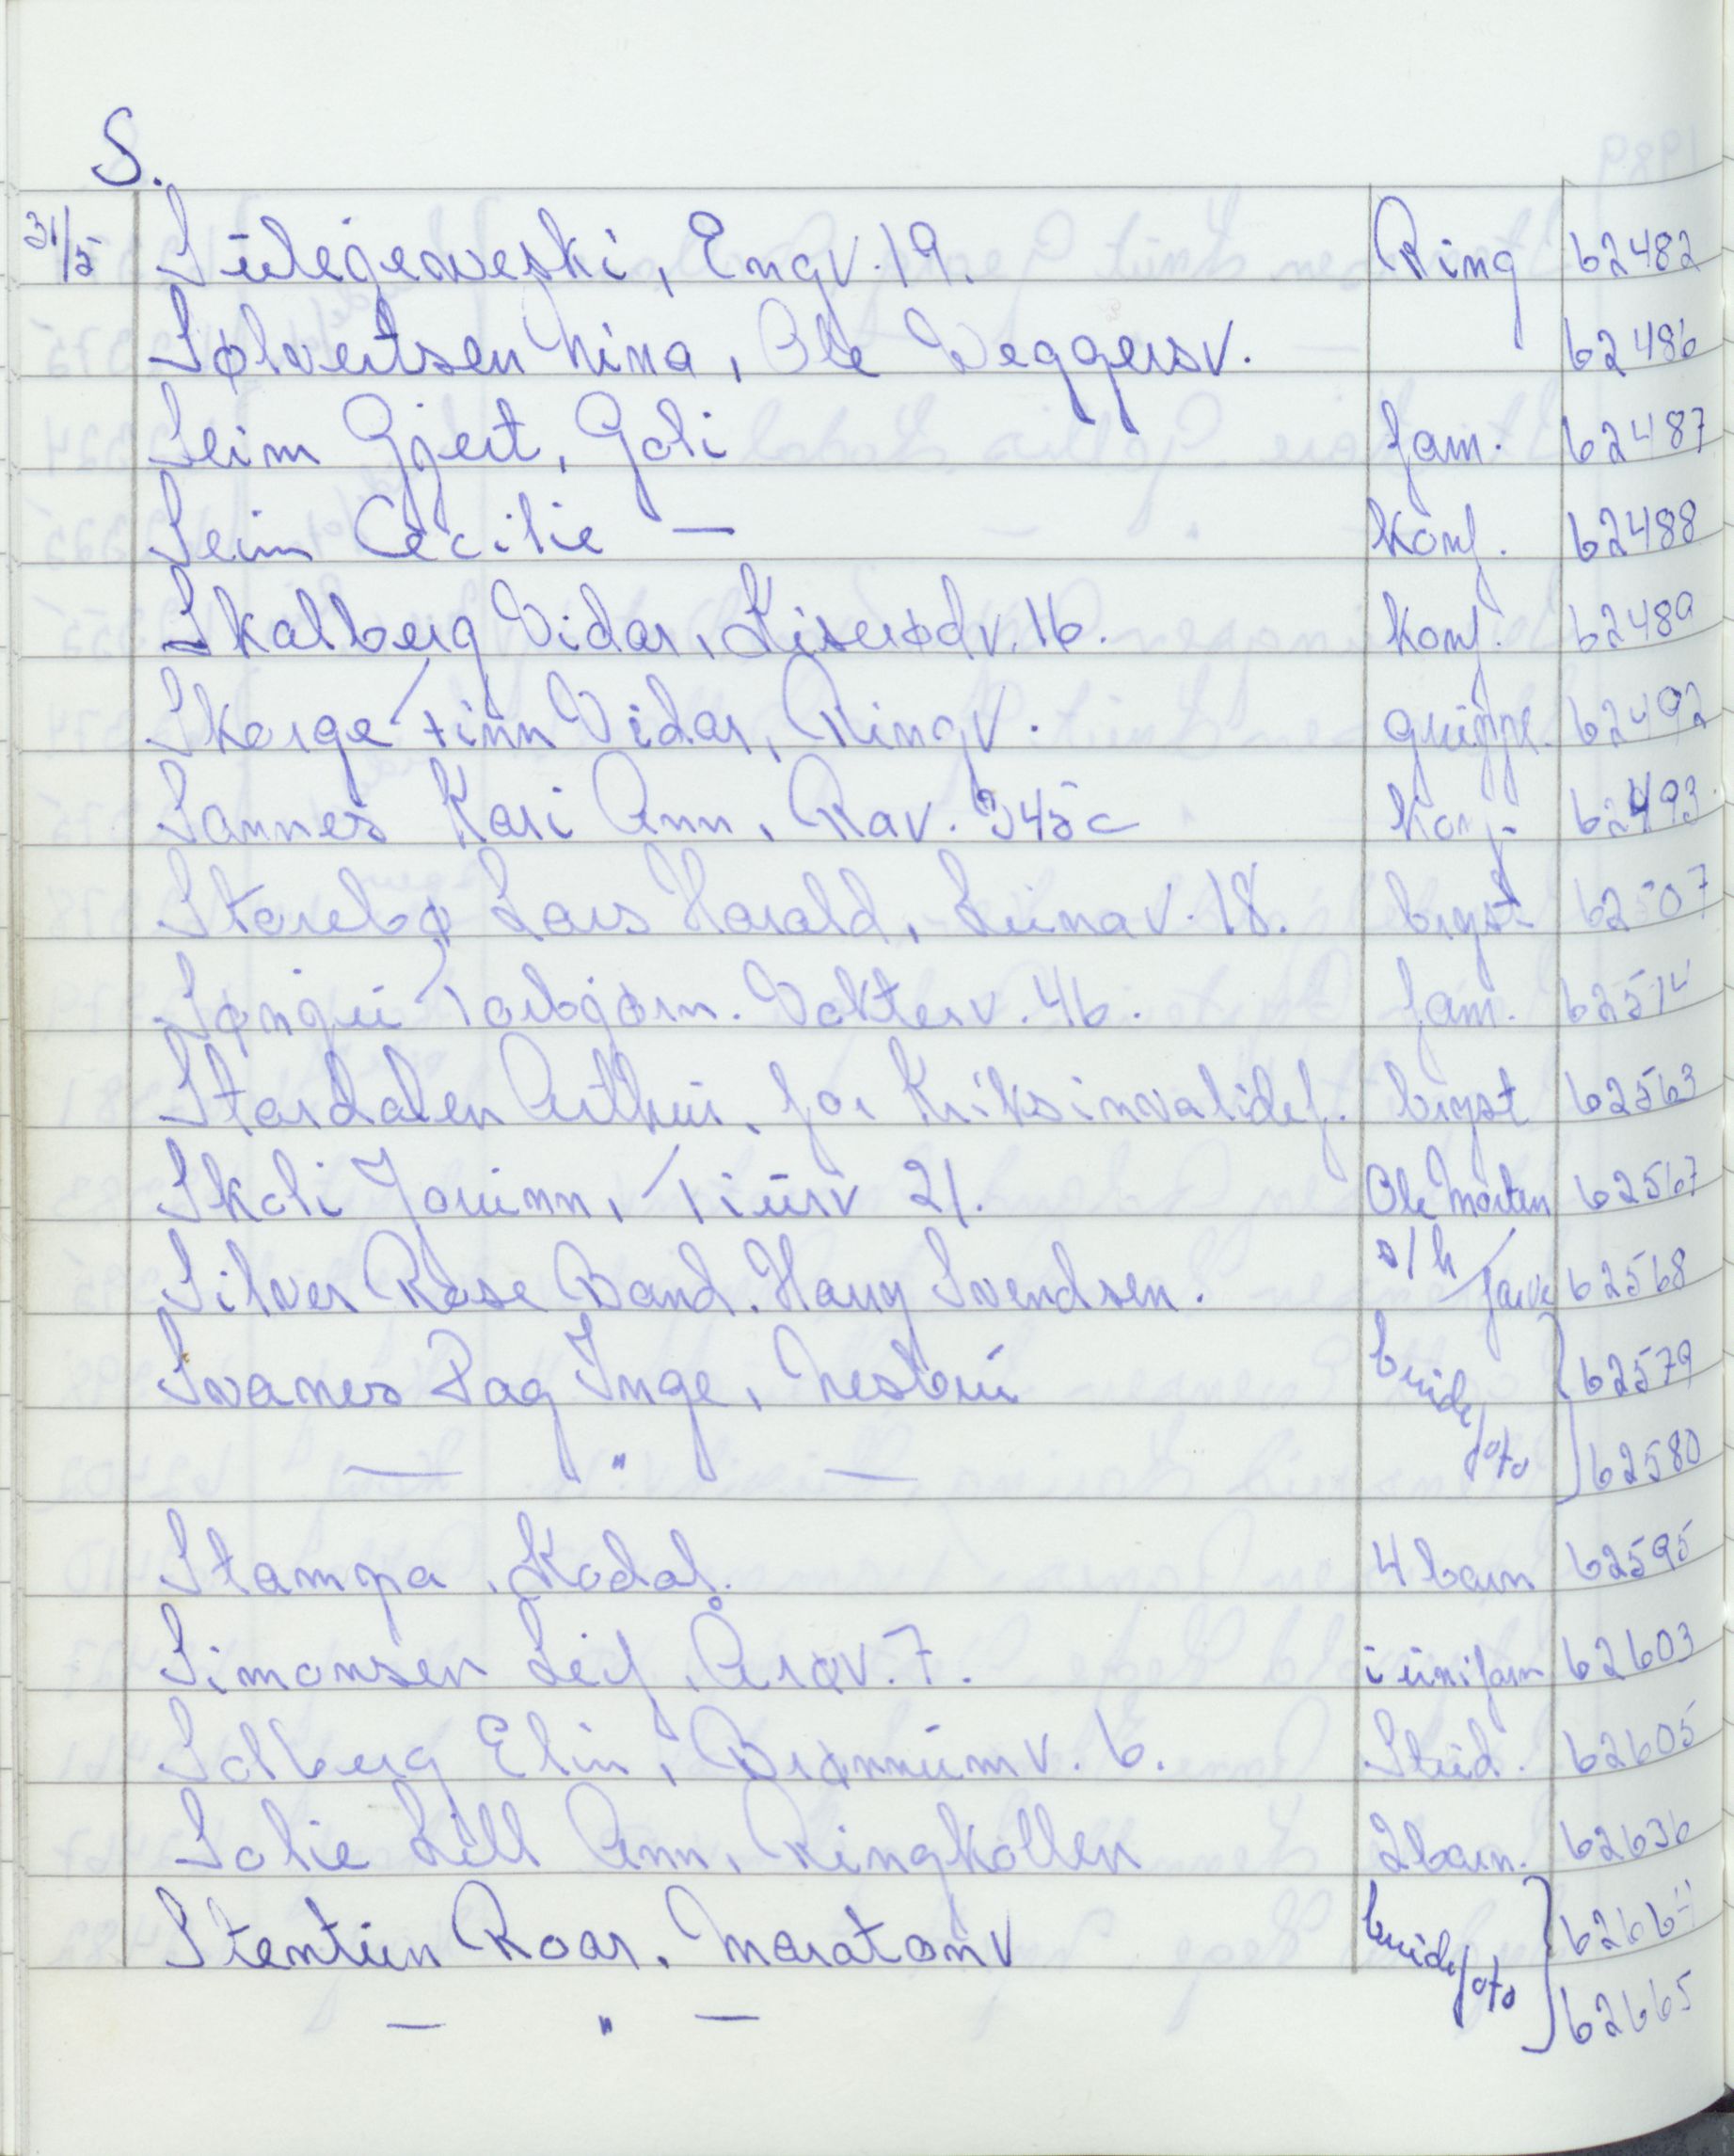 S.
31/5 Sülejeweski, Engv. 19. Ring 62482
Sølvertsen Nina, Ole Weggersv. 62486
Seim Gjert, Goli fam. 62487
Seim Cecilie — Konf. 62488
Skalberg Vidar, Liserødv. 16. Konf. 62489
Skorge Finn Vidar, Ringv. gruppe. 62492
Sannes Kari Ann, Rav. 345c Konf. 62493
Storebø Lars Harald, Lunav. 18. bryst 62507
Torbjørn. Vokterv. 46. fam. 62514
Stordalen Arthur, for Kriksinvalidef. bryst 62563
Skoli Jorunn, Tiurv 21. Ole Morten 62567
Silver Rose Band. Harry Svendsen. s/h / farve 62568
Svanes Dag Inge, Nesbru brudefoto 62579
— " — 62580
Stampa, Kodal. 4 barn 62595
Simonsen Leif, Åsav. 7. i uniform 62603
Solberg Elin, Brønnumv. 6. Stud. 62605
Solie Lill Ann, Ringkollen 2 barn. 62636
Stentun Roar, Maratonv brudefoto 62664
— " — 62665